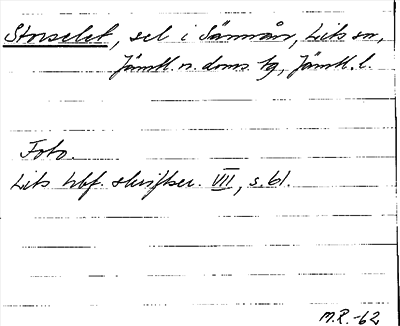 Storselet, sel i Sännån, Lits sn,
Jämtl. n. doms. tg, Jämtl. l.
Foto.
Lits hbf. skrifter. VIII, s. 61.
M.R.-62